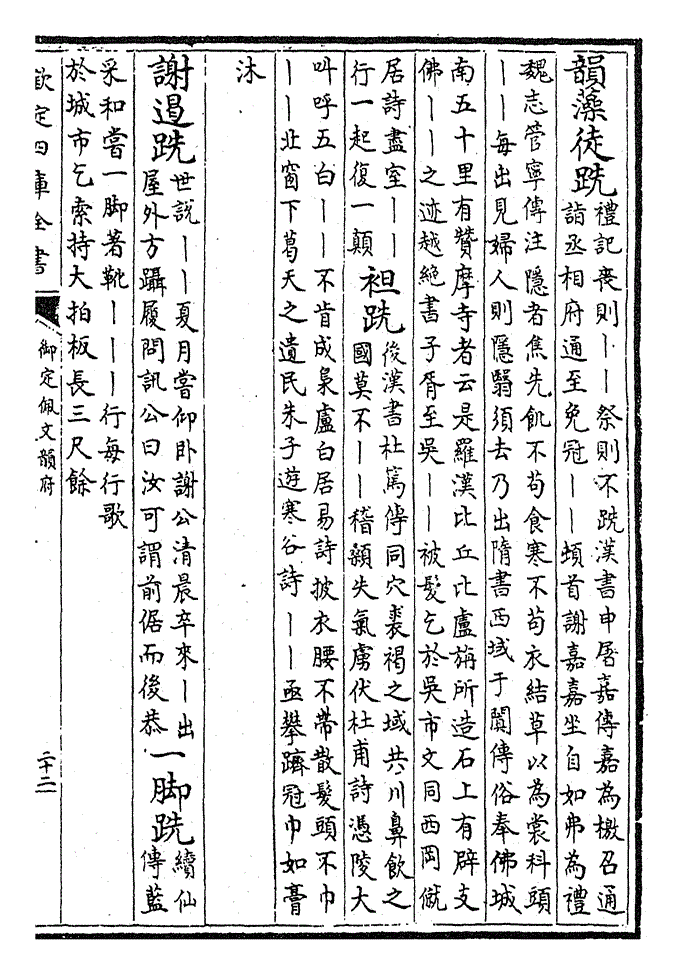 韻藻徒跣
禮記喪則丨丨祭則不跣漢書申屠嘉傳嘉為檄召通
詣丞相府通至免冠丨丨頓首謝嘉嘉坐自如弗為禮
魏志管寧傳注隱者焦先飢不苟食寒不苟衣結草以為裳科頭
丨丨每出見婦人則隱翳須去乃出隋書西域于闐傳俗奉佛城
南五十里有贊摩寺者云是羅漢比丘比盧旃所造石上有辟支
佛丨丨之迹越絶書子胥至吳丨丨被髮乞於吳市文同西岡僦
居詩盡室丨丨
行一起復一顛
袒跣
後漢書杜篤傳同穴裘褐之域共川鼻飲之
國莫不丨丨稽顙失氣虜伏杜甫詩憑陵大
叫呼五白丨丨不肯成梟盧白居易詩披衣腰不帶散髮頭不巾
丨丨北窗下葛天之遺民朱子遊寒谷詩丨丨亟攀躋冠巾如膏
沐
謝遏跣
世説丨丨夏月嘗仰卧謝公清晨卒來丨出
屋外方躡履問訊公曰汝可謂前倨而後恭
一脚跣
續仙
傳藍
采和嘗一脚著靴丨丨丨行每行歌
於城市乞索持大拍板長三尺餘
欽定四庫全書
御定佩文韻府
二十二